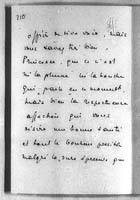 210
offrir de vive voix, mais
vous savez très bien,
Princesse, que ce n'est
ni la plume, ni la bouche
qui parle en ce moment,
mais bien la respectueuse
affection qui vous
désire une bonne santé
et tout le bonheur possible
malgré la dure épreuve que